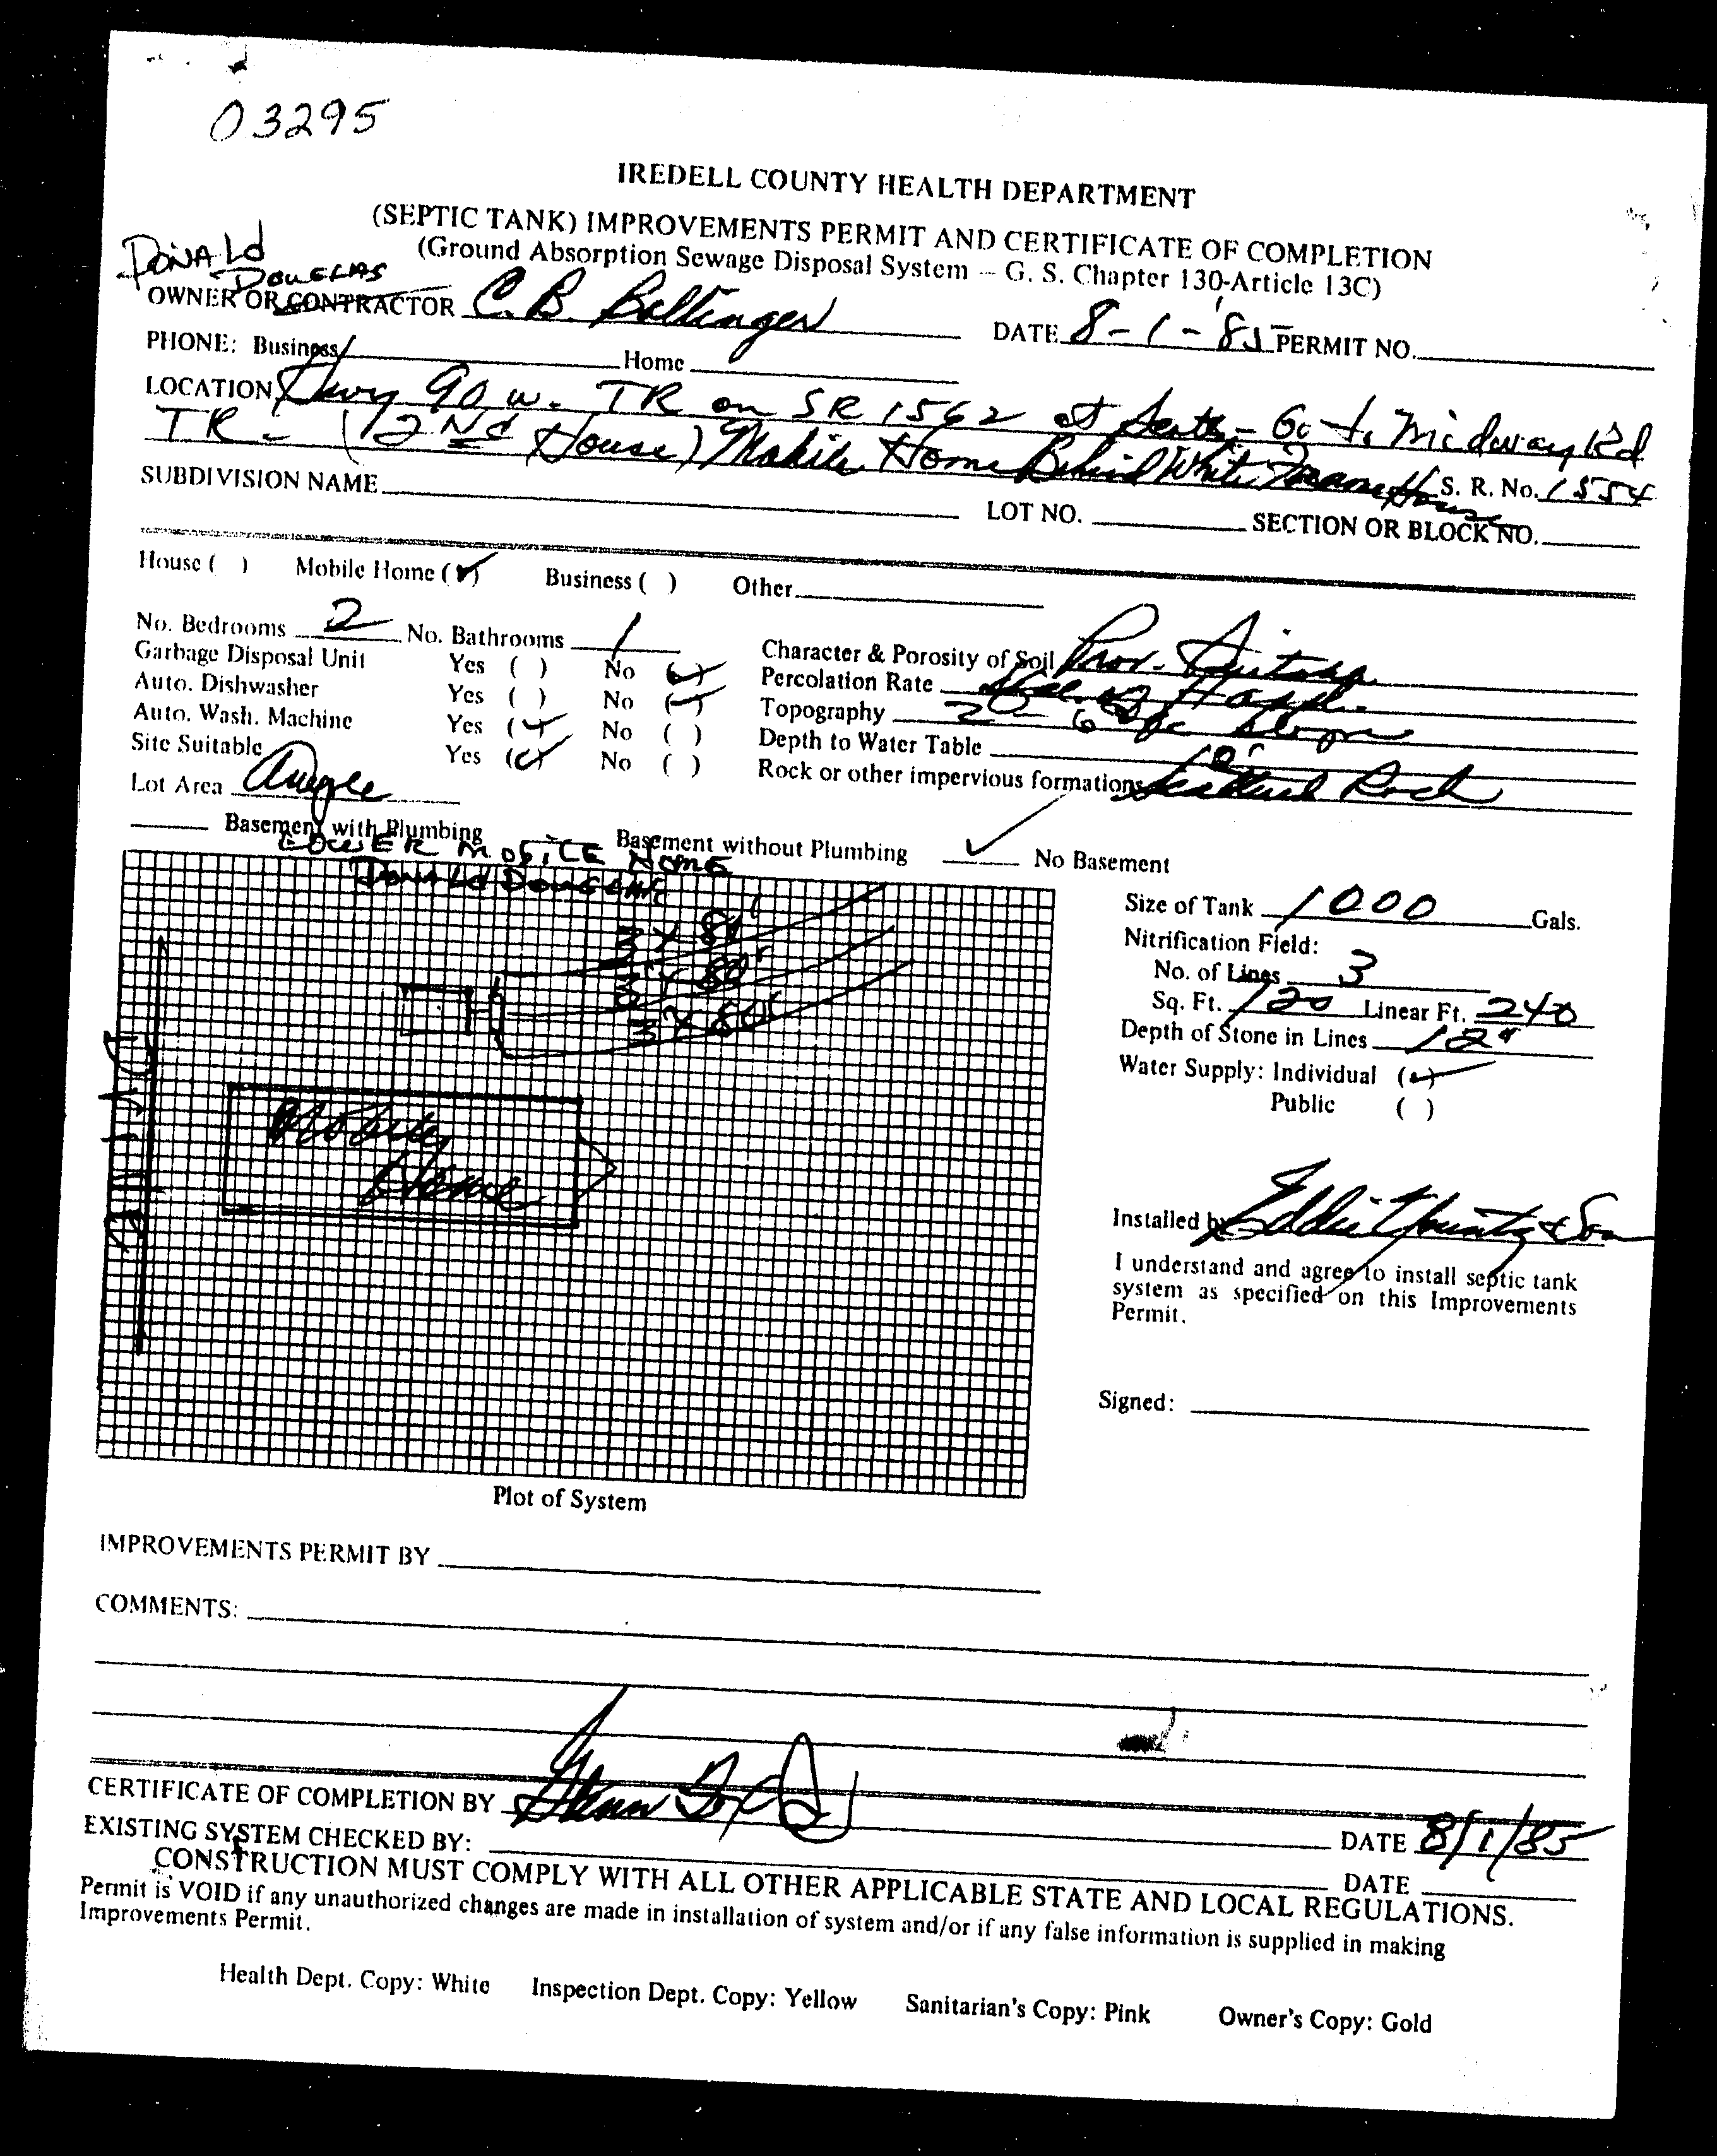 03295
IREDELL COUNTY HEALTH DEPARTMENT
(SEPTIC TANK) IMPROVEMENTS PERMIT AND CERTIFICATE OF COMPLETION
(Ground Absorption Sewage Disposal System — G. S. Chapter 130-Article 13C)
DONALD
DOUGLAS
OWNER OR CONTRACTOR C. B. Ballinger DATE 8-1-'85 PERMIT NO.
PHONE: Business Home
LOCATION Hwy 90 W. TR on SR 1562 at - Go to Midway Rd
TR - (2ND House) Mobile Home Behind White Frame House S. R. No. 1554
SUBDIVISION NAME LOT NO. SECTION OR BLOCK NO.
House ( ) Mobile Home (✓) Business ( ) Other
No. Bedrooms 2 No. Bathrooms 1
Garbage Disposal Unit Yes ( ) No (✓)
Auto. Dishwasher Yes ( ) No (✓)
Auto. Wash. Machine Yes (✓) No ( )
Site Suitable Yes (✓) No ( )
Lot Area Ample
Character & Porosity of Soil Prov. Suitable
Percolation Rate
Topography 2 - 6 % slope
Depth to Water Table
Rock or other impervious formations Scattered Rock
Basement with Plumbing Basement without Plumbing ✓ No Basement
LOWER MOBILE HOME
DONALD DOUGLAS
3' X 80'
3' X 80'
3' X 80'
DRIVE
Mobile
Home
Plot of System
Size of Tank 1000 Gals.
Nitrification Field:
No. of Lines 3
Sq. Ft. 720 Linear Ft. 240
Depth of Stone in Lines 12"
Water Supply: Individual (✓)
Public ( )
Installed by Eddie & Son
I understand and agree to install septic tank
system as specified on this Improvements
Permit.
Signed:
IMPROVEMENTS PERMIT BY
COMMENTS:
CERTIFICATE OF COMPLETION BY DATE 8/1/85
EXISTING SYSTEM CHECKED BY: DATE
CONSTRUCTION MUST COMPLY WITH ALL OTHER APPLICABLE STATE AND LOCAL REGULATIONS.
Permit is VOID if any unauthorized changes are made in installation of system and/or if any false information is supplied in making
Improvements Permit.
Health Dept. Copy: White Inspection Dept. Copy: Yellow Sanitarian's Copy: Pink Owner's Copy: Gold